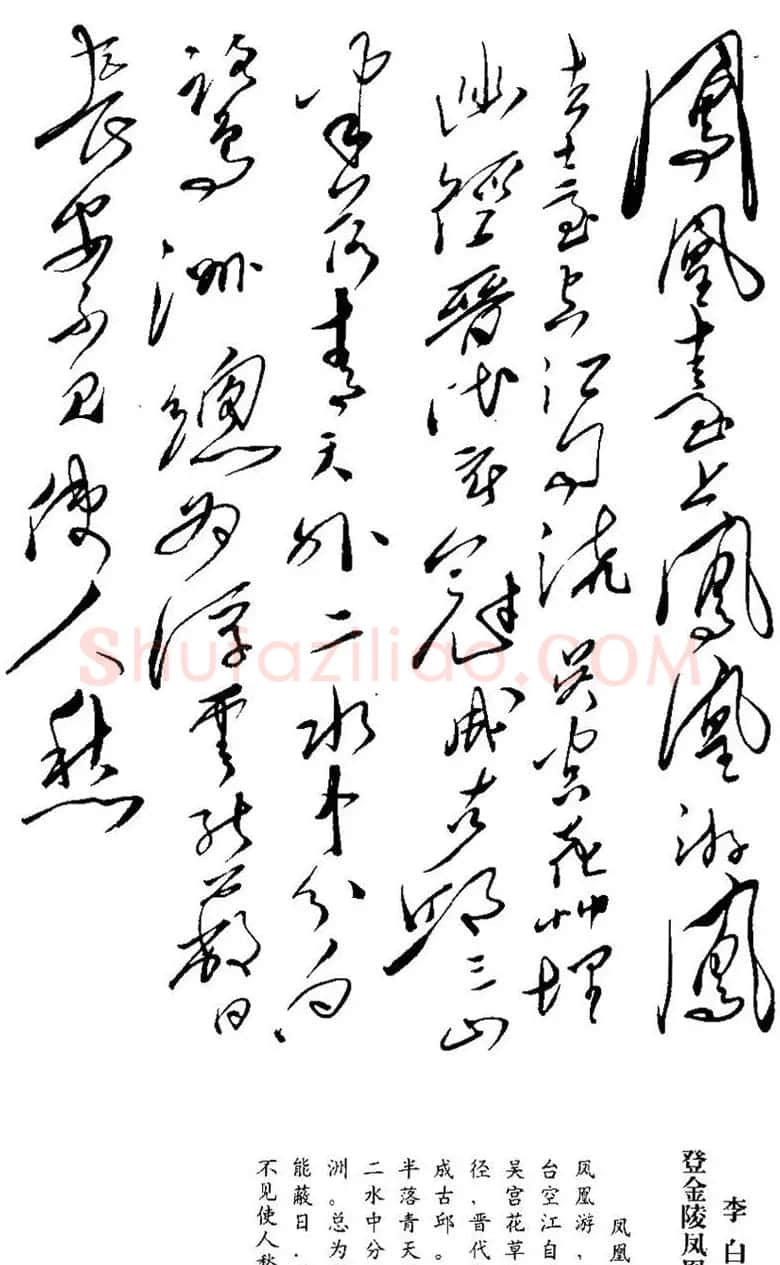 鳳凰臺上鳳凰游鳳
去臺空江自流吴宫花草埋
幽徑晉代衣冠成古邱三山
半落青天外二水中分白
鷺洲總為浮雲能蔽日
長安不見使人愁
Shufaziliao.COM
李白
登金陵凤
凤凰
凤凰游，
台空江自
吴宫花草
径、晋代
成古邱。
半落青天
二水中分
洲。总为
能蔽日.
不见使人愁